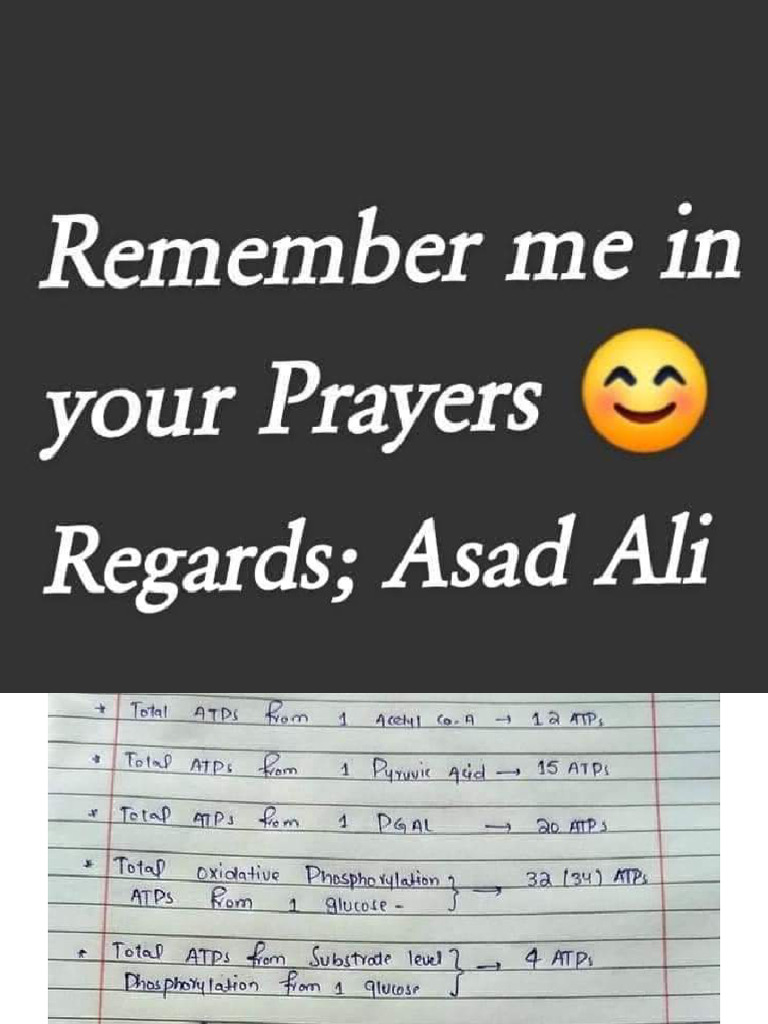 Remember me in
your Prayers 😊
Regards; Asad Ali
* Total ATPs from 1 Acetyl Co.A → 12 ATPs
* Total ATPs from 1 Pyruvic Acid → 15 ATPs
* Total ATPs from 1 PGAL → 20 ATPs
* Total oxidative Phosphorylation } → 32 (34) ATPs
ATPs from 1 glucose -
* Total ATPs from Substrate level } → 4 ATPs
Phosphorylation from 1 glucose